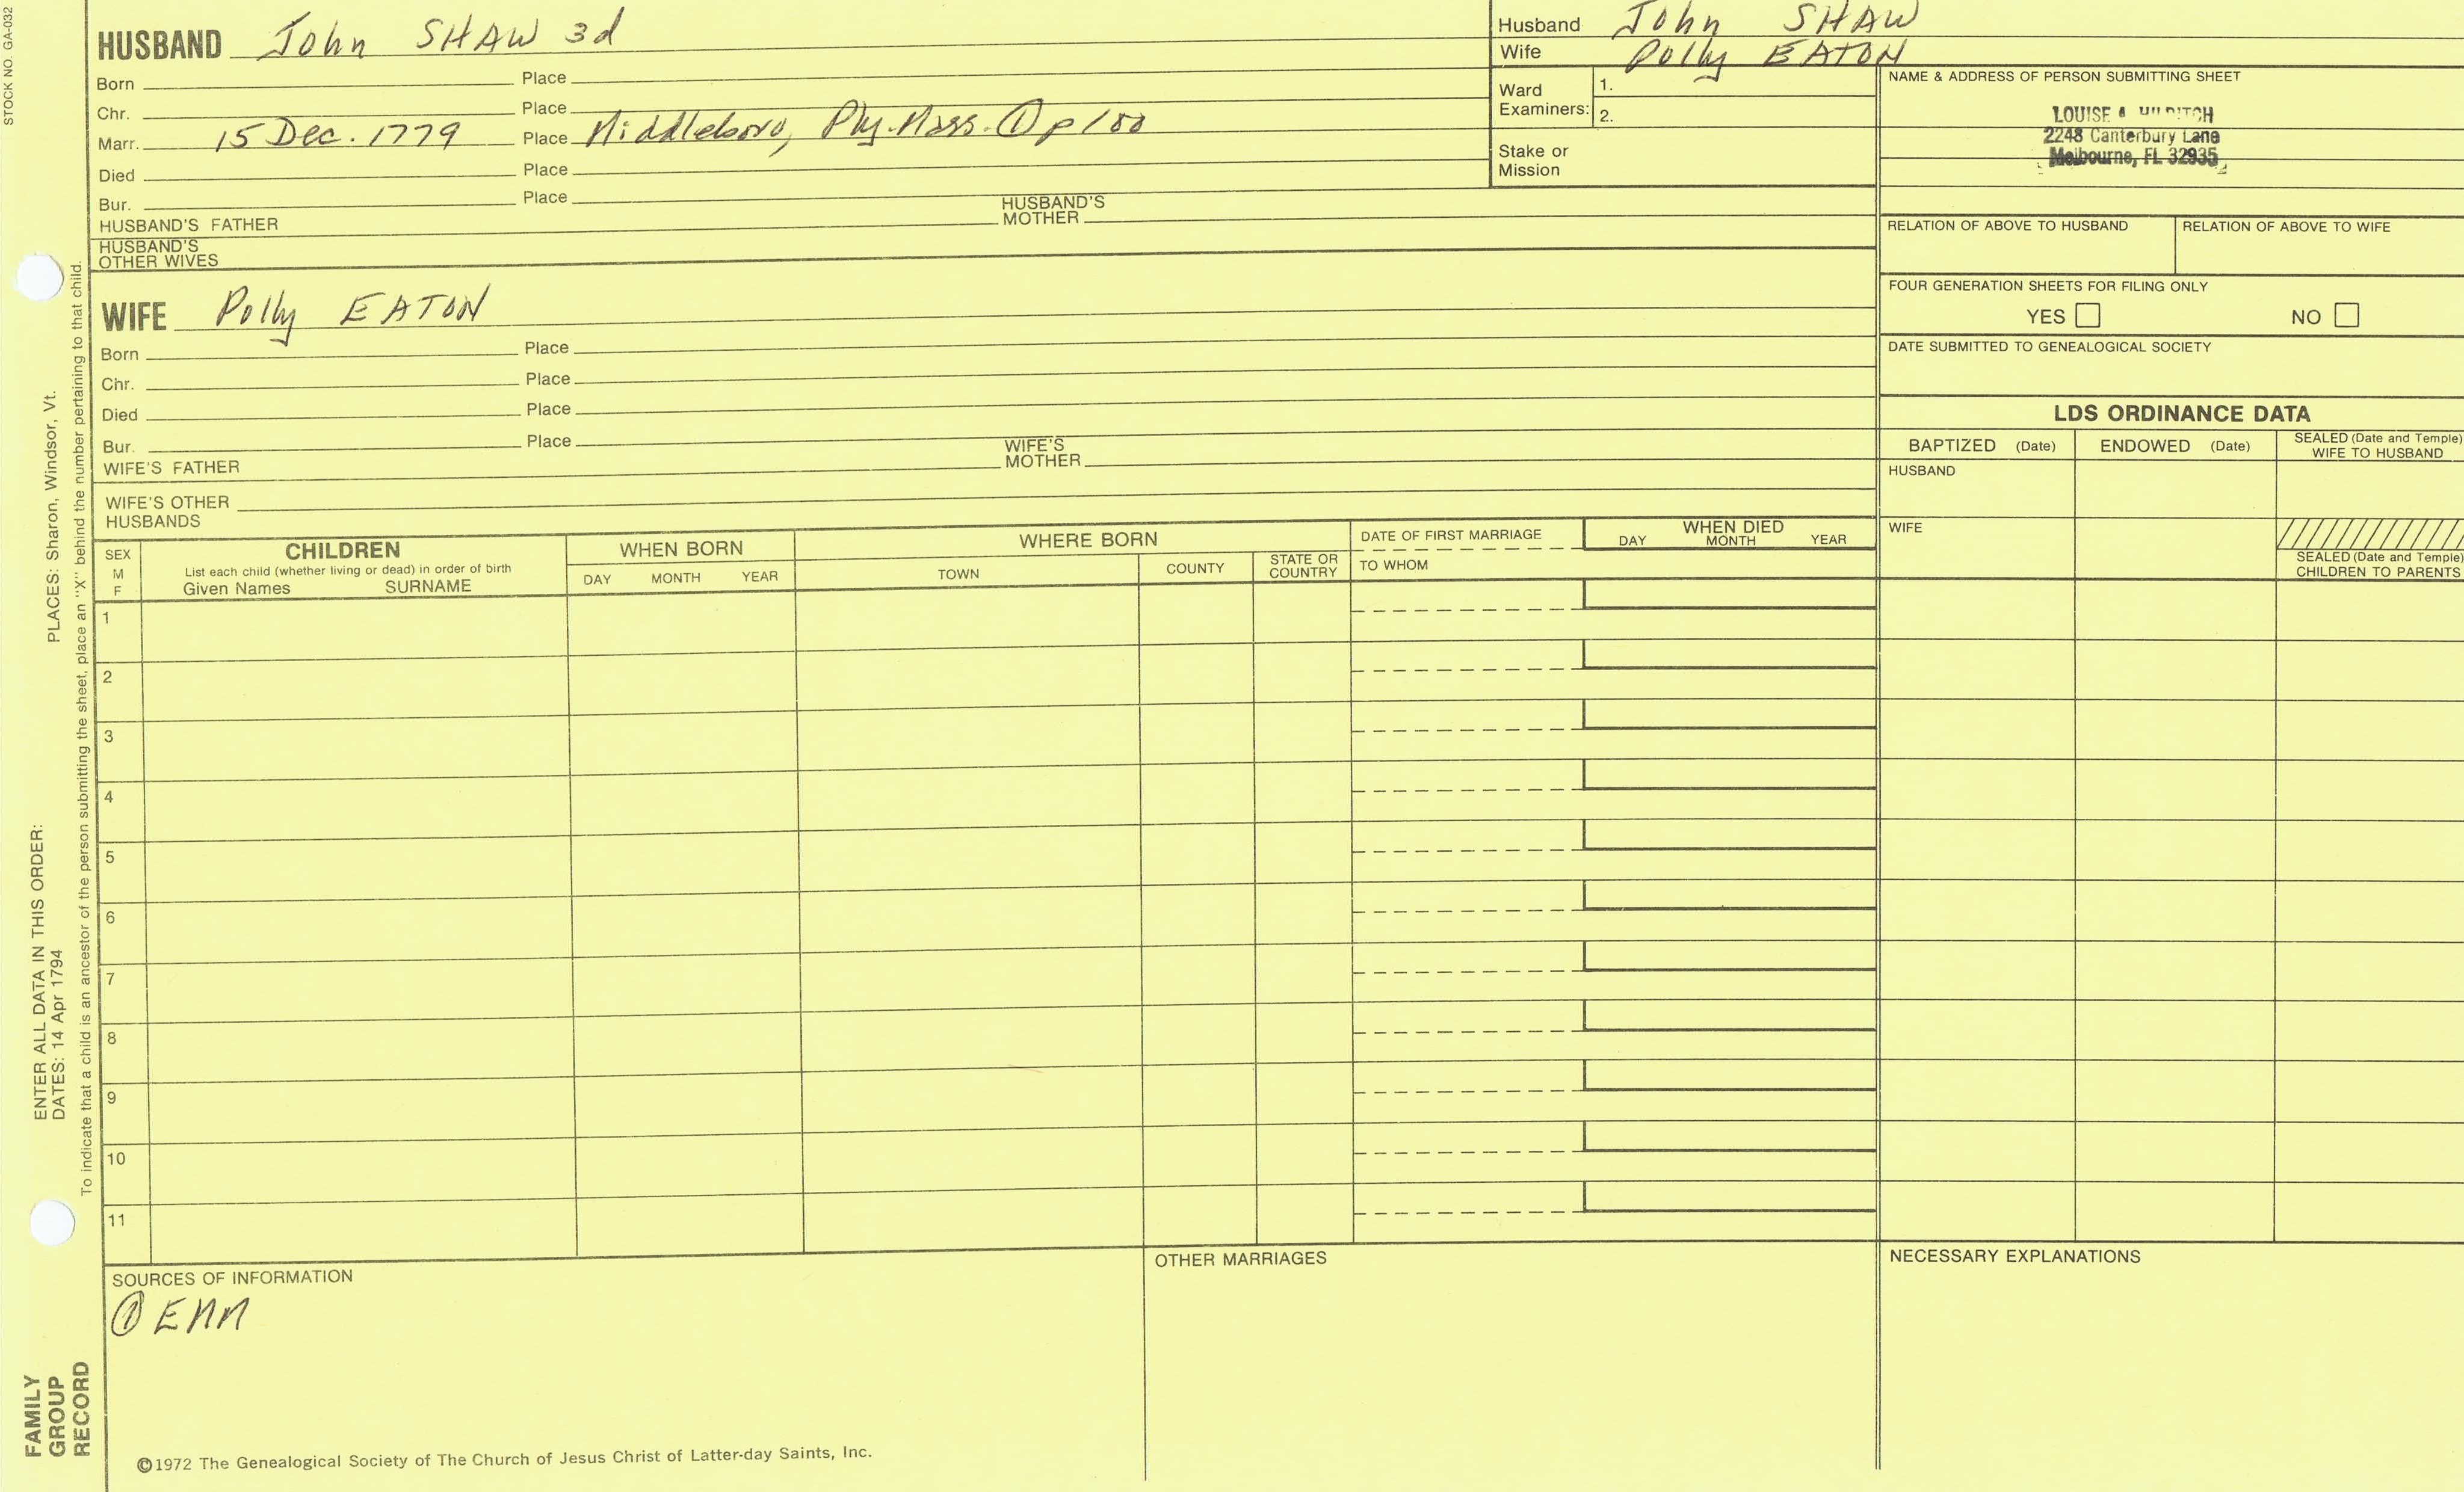 STOCK NO. GA-032
HUSBAND John SHAW 3d
Born Place
Chr. Place
Marr. 15 Dec. 1779 Place Middleboro, Ply. Mass. ① p 100
Died Place
Bur. Place
HUSBAND'S FATHER HUSBAND'S MOTHER
HUSBAND'S OTHER WIVES
Husband John SHAW
Wife Polly EATON
Ward Examiners: 1.
2.
Stake or Mission
NAME & ADDRESS OF PERSON SUBMITTING SHEET
LOUISE
2248 Canterbury Lane
Melbourne, FL 32935
RELATION OF ABOVE TO HUSBAND RELATION OF ABOVE TO WIFE
FOUR GENERATION SHEETS FOR FILING ONLY
YES NO
DATE SUBMITTED TO GENEALOGICAL SOCIETY
WIFE Polly EATON
Born Place
Chr. Place
Died Place
Bur. Place
WIFE'S FATHER WIFE'S MOTHER
WIFE'S OTHER HUSBANDS
LDS ORDINANCE DATA
BAPTIZED (Date) ENDOWED (Date) SEALED (Date and Temple) WIFE TO HUSBAND
HUSBAND
WIFE
SEALED (Date and Temple) CHILDREN TO PARENTS
SEX M F
CHILDREN
List each child (whether living or dead) in order of birth
Given Names SURNAME
WHEN BORN
DAY MONTH YEAR
WHERE BORN
TOWN COUNTY STATE OR COUNTRY
DATE OF FIRST MARRIAGE
TO WHOM
WHEN DIED
DAY MONTH YEAR
1
2
3
4
5
6
7
8
9
10
11
SOURCES OF INFORMATION
① EMM
OTHER MARRIAGES
NECESSARY EXPLANATIONS
©1972 The Genealogical Society of The Church of Jesus Christ of Latter-day Saints, Inc.
FAMILY GROUP RECORD
ENTER ALL DATA IN THIS ORDER:
DATES: 14 Apr 1794
PLACES: Sharon, Windsor, Vt.
To indicate that a child is an ancestor of the person submitting the sheet, place an "X" behind the number pertaining to that child.